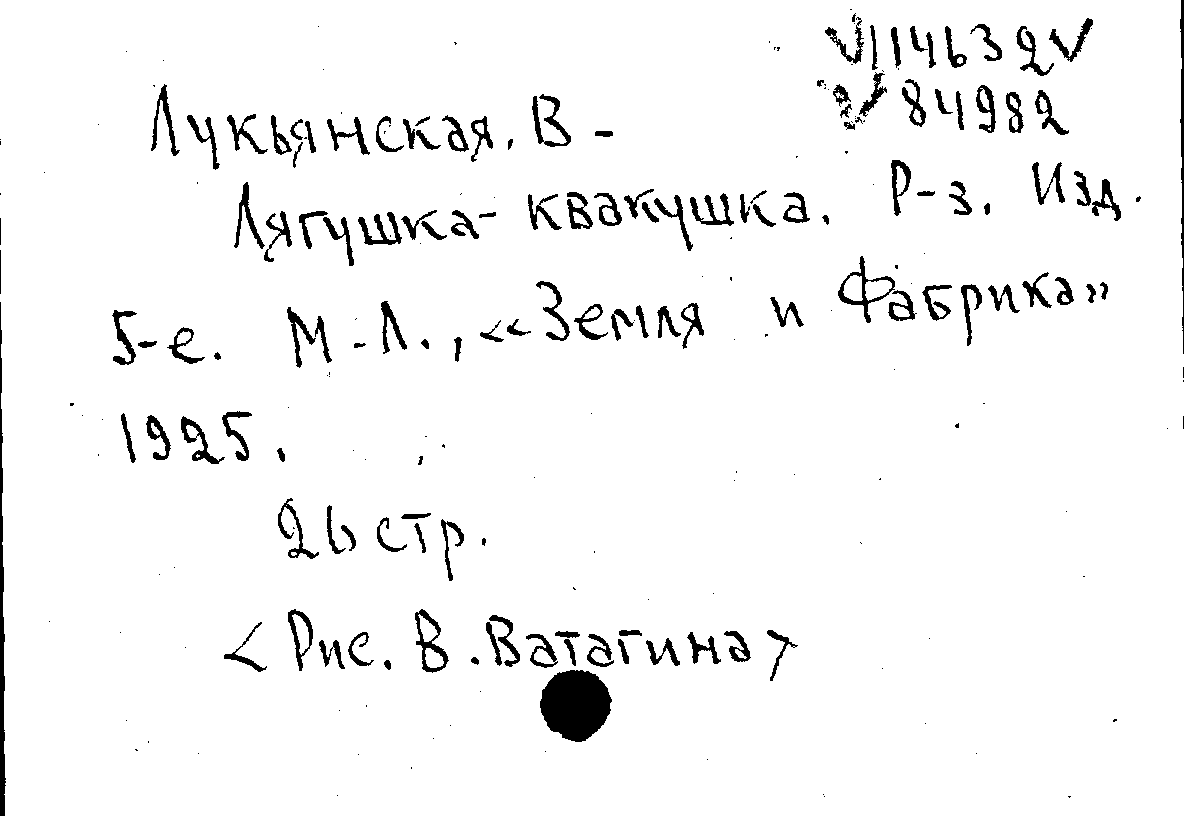 √114632√
√ 84982
Лукьянская. В -
Лягушка-квакушка. Р-з. Изд.
5-е. М-Л., «Земля и Фабрика»
1925.
26 стр.
<Рис. В. Ватагина>